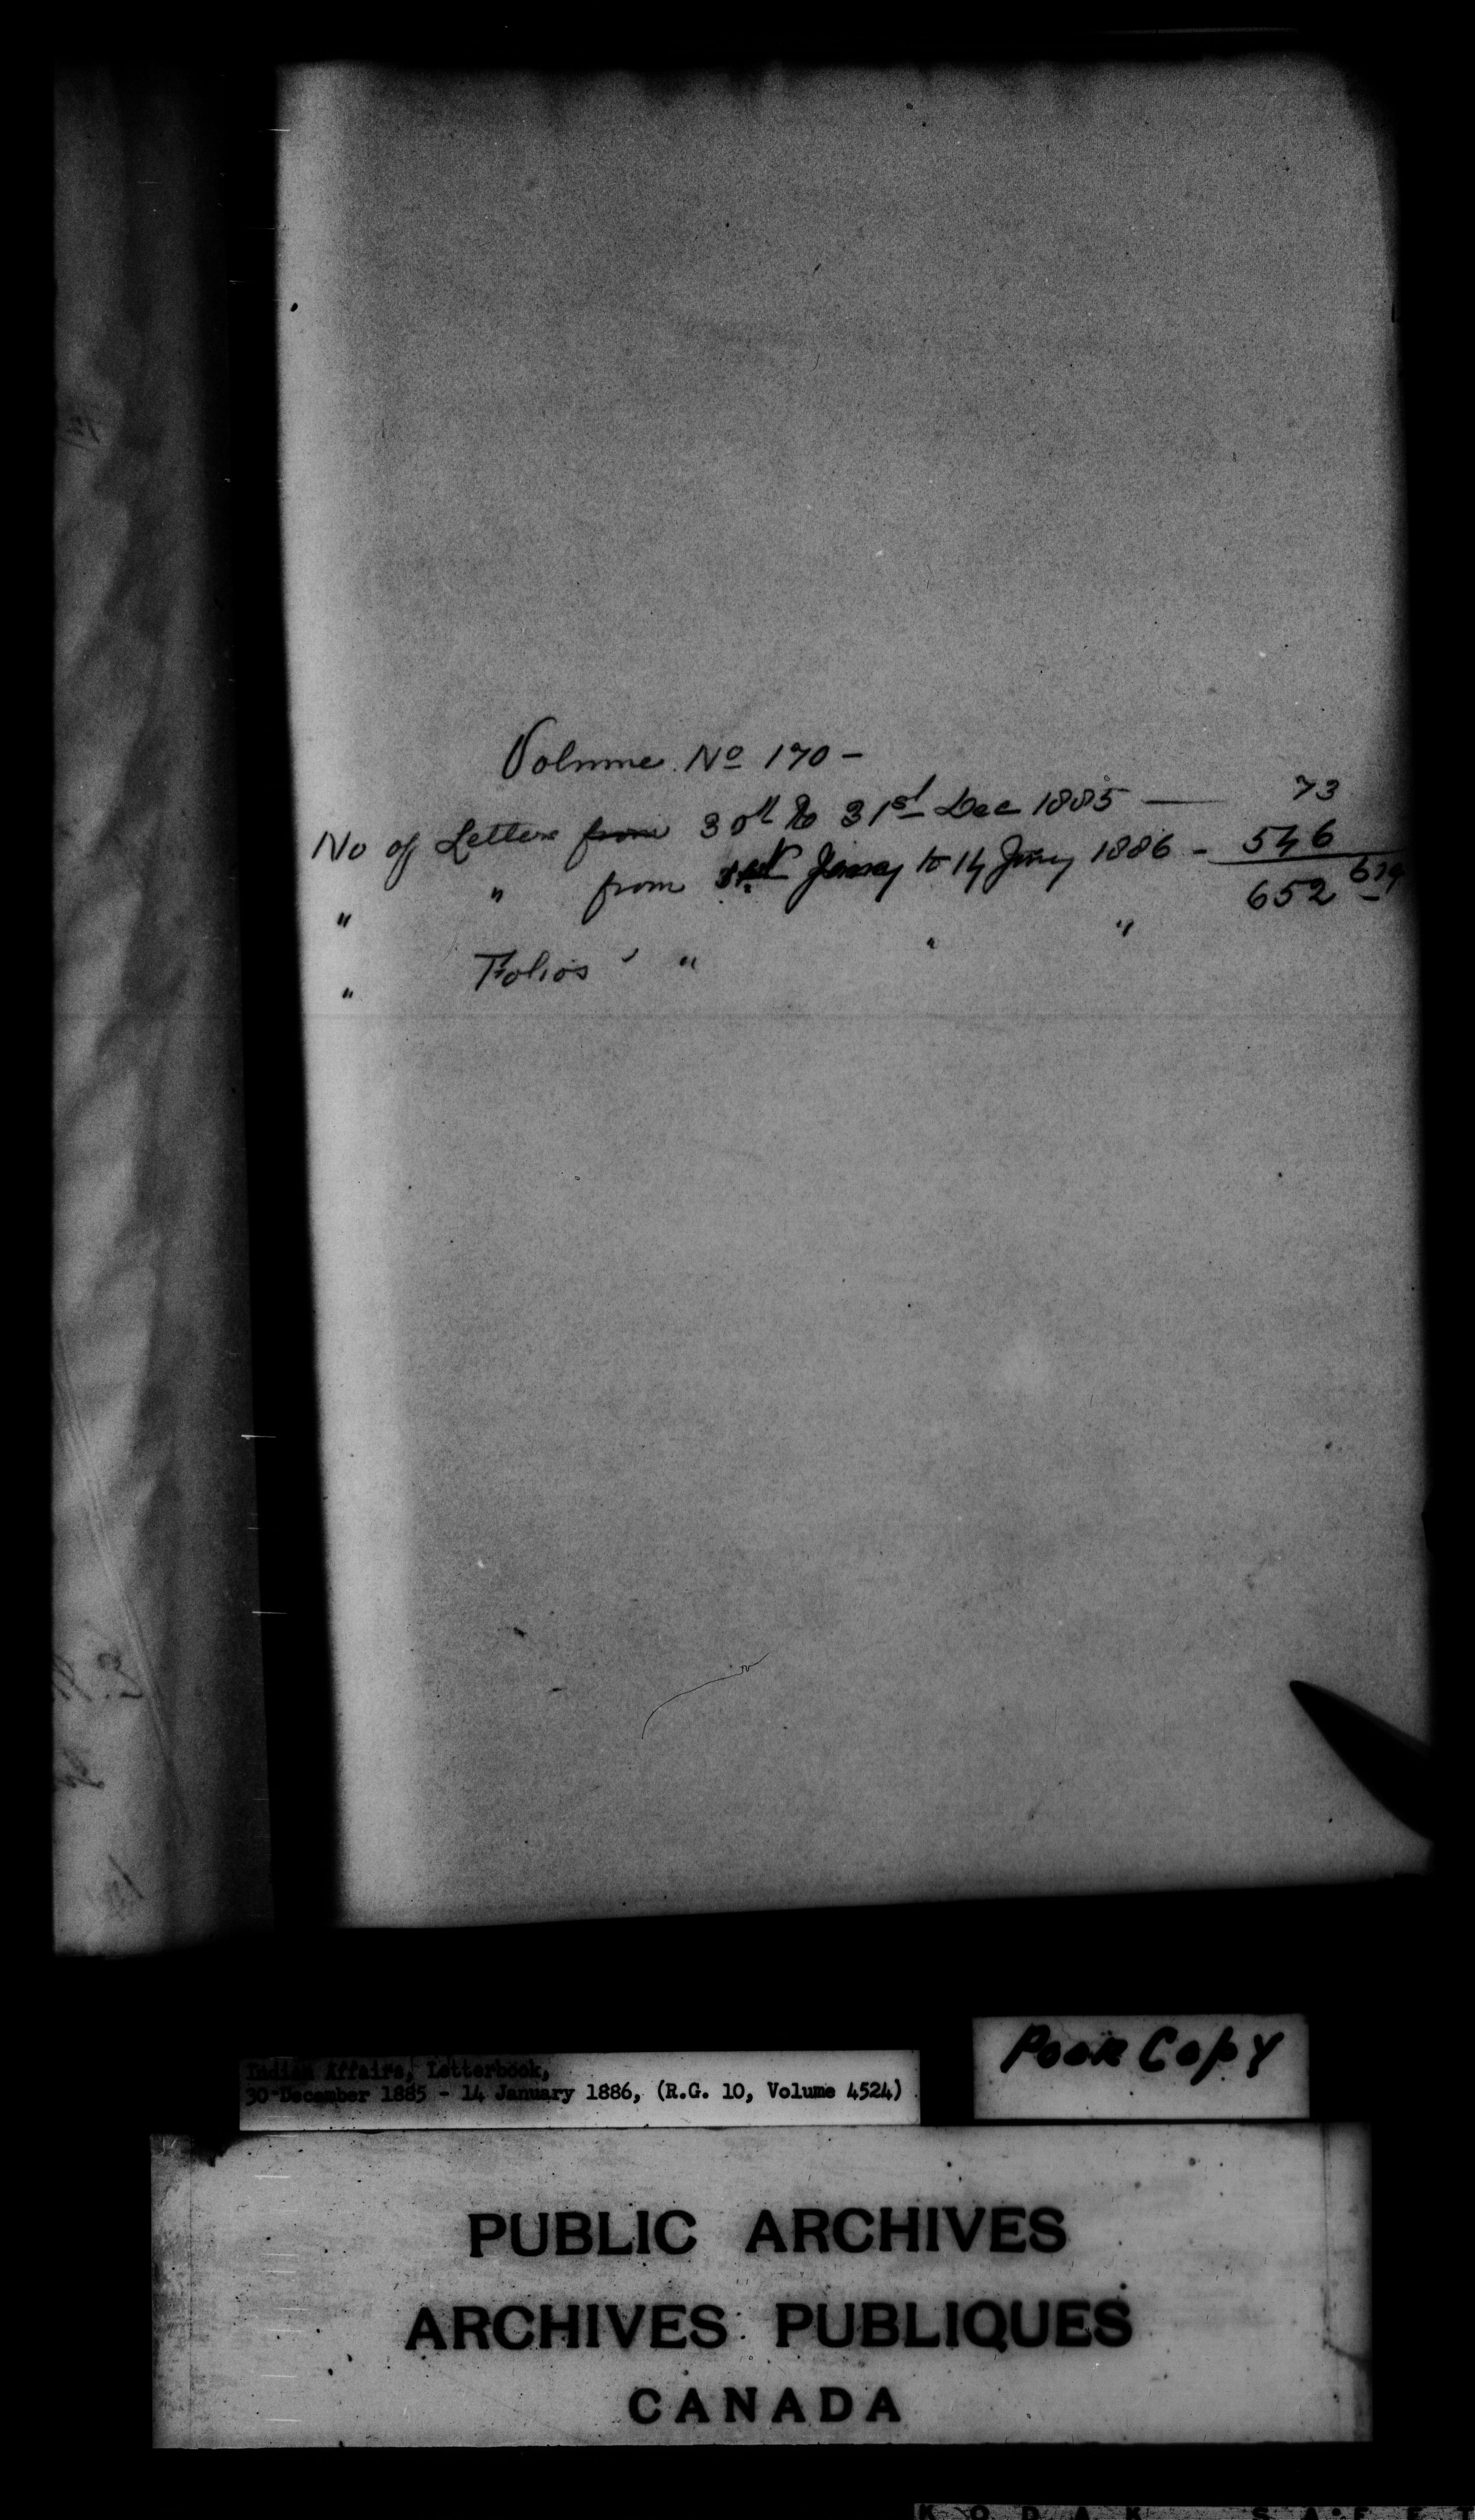 Volume No 170 -
No of Letters from 30th to 31st Dec 1885 — 73
" " from 1st Jany to 14 Jany 1886 - 546
619
" Folios " " " 652
Poor Copy
Indian Affairs, Letterbook,
30 December 1885 - 14 January 1886, (R.G. 10, Volume 4524)
PUBLIC ARCHIVES
ARCHIVES PUBLIQUES
CANADA
KODAK SAFE